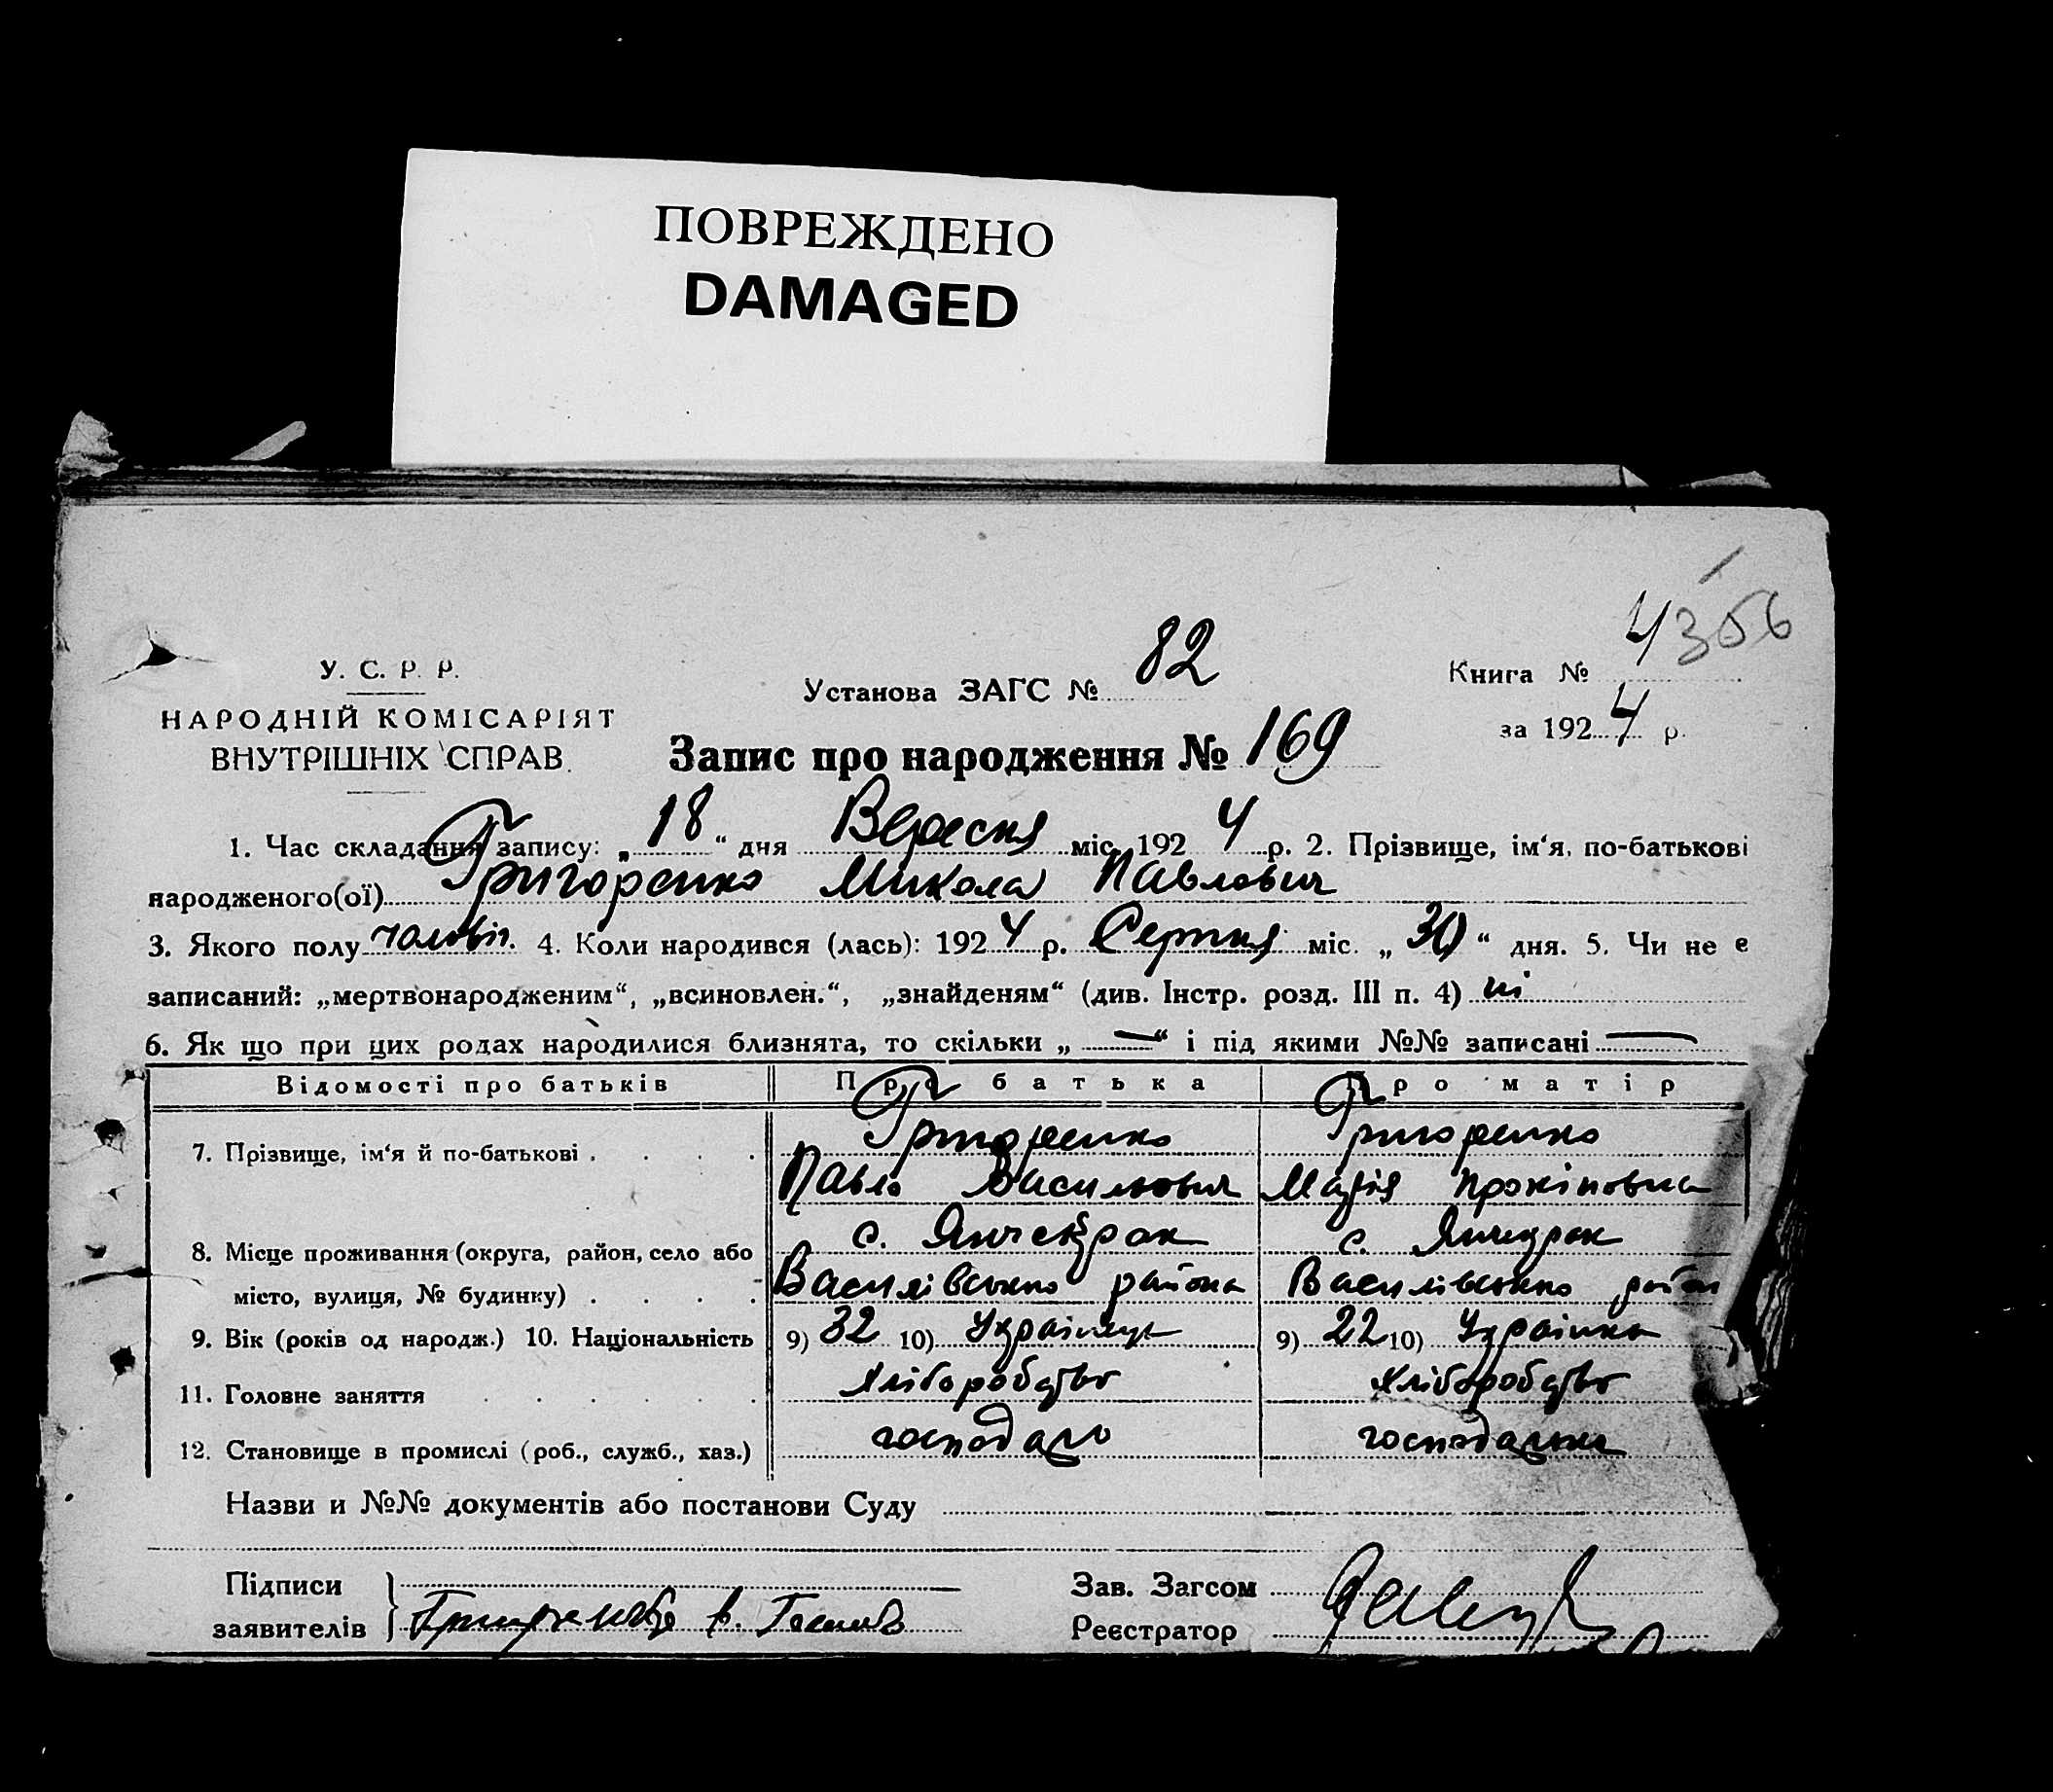 ПОВРЕЖДЕНО
DAMAGED
4356
У. С. Р. Р.
НАРОДНІЙ КОМІСАРІЯТ
ВНУТРІШНІХ СПРАВ.
Установа ЗАГС № 82
Книга №
за 1924 р.
Запис про народження № 169
1. Час складання запису: „18“ дня Вересня міс. 1924 р. 2. Прізвище, ім‘я, по-батькові
народженого(ої) Григоренко Микола Павлович
3. Якого полу чоловіч. 4. Коли народився (лась): 1924 р. Серпня міс. „30“ дня. 5. Чи не е
записаний: „мертвонародженим“, „всиновлен.“, „знайденям“ (див. Інстр. розд. III п. 4) ні
6. Як що при цих родах народилися близнята, то скільки „—“ і під якими №№ записані —
Відомості про батьків Про батька Про матір
7. Прізвище, ім‘я й по-батькові . Григоренко Григоренко
Павло Васильович Марія Прокіповна
8. Місце проживання (округа, район, село або с. Янчекрак с. Янчекрак
місто, вулиця, № будинку) . Василівського района Василівського район
9. Вік (років од народж.) 10. Національність 9) 32 10) Українець 9) 22 10) Українка
11. Головне заняття Хліборобство Хліборобство
12. Становище в промислі (роб., служб., хаз.) господарь господарька
Назви и №№ документів або постанови Суду
Підписи
заявителів
Зав. Загсом
Реєстратор